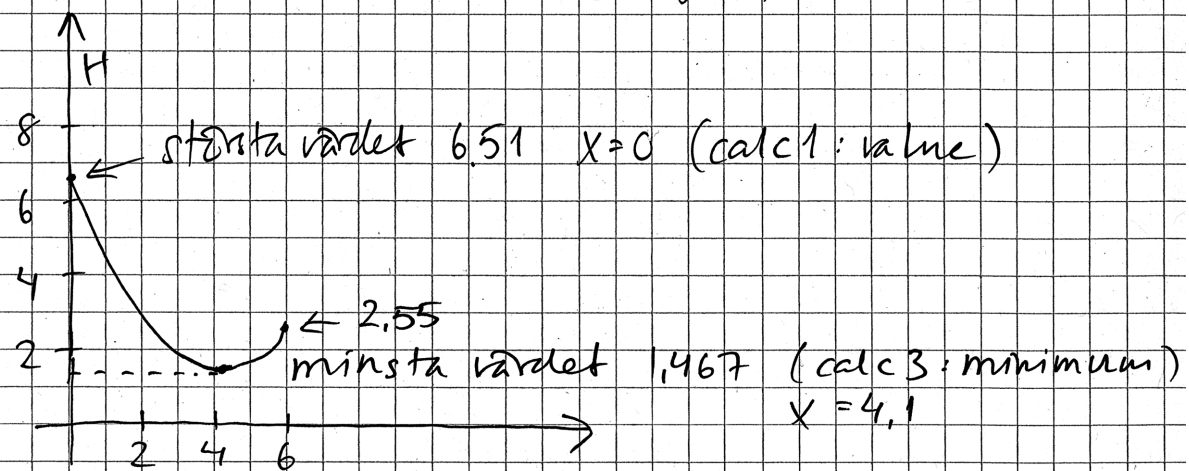 H
8
största värdet 6.51 X=0 (calc1: value)
6
4
← 2,55
2
minsta värdet 1,467 (calc3: minimum)
X = 4,1
2 4 6